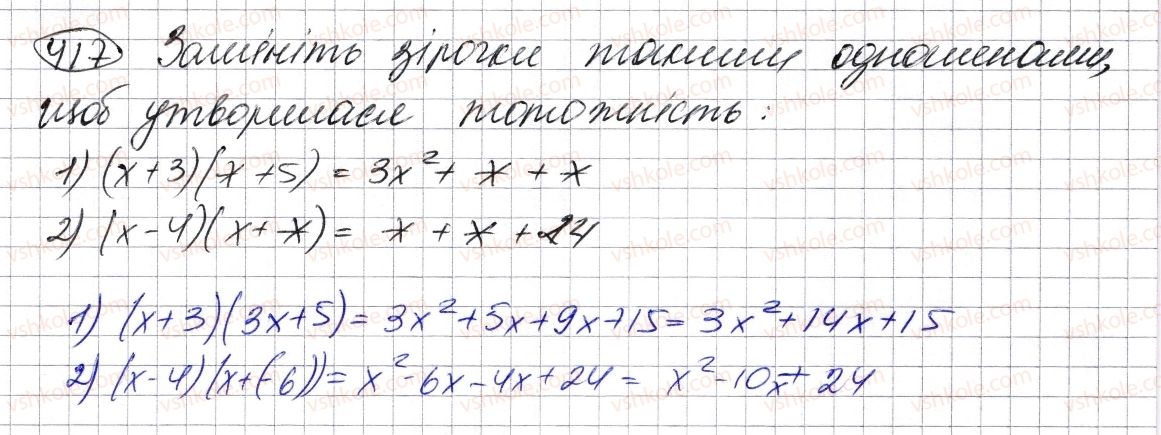 417 Замініть зірочки такими одночленами,
щоб утворилася тотожність:
1) (x+3)(* +5) = 3x² + * + *
2) (x-4)(x+ *) = * + * + 24
1) (x+3)(3x+5) = 3x²+5x+9x+15 = 3x²+14x+15
2) (x-4)(x+(-6)) = x²-6x-4x+24 = x²-10x+24